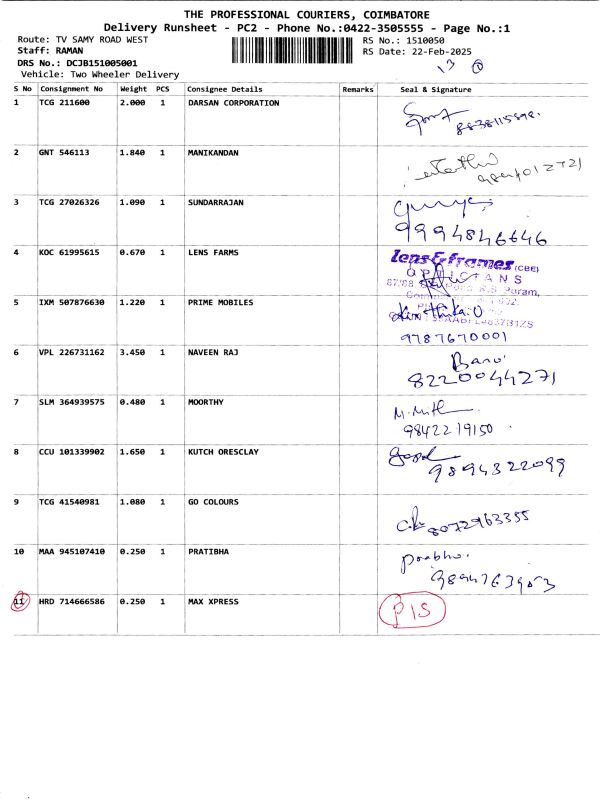 THE PROFESSIONAL COURIERS, COIMBATORE
Delivery Runsheet - PC2 - Phone No.:0422-3505555 - Page No.:1
Route: TV SAMY ROAD WEST RS No.: 1510050
Staff: RAMAN RS Date: 22-Feb-2025
DRS No.: DCJB151005001
Vehicle: Two Wheeler Delivery
S No Consignment No Weight PCS Consignee Details Remarks Seal & Signature
1 TCG 211600 2.000 1 DARSAN CORPORATION
2 GNT 546113 1.840 1 MANIKANDAN
3 TCG 27026326 1.090 1 SUNDARRAJAN
9994846646
4 KOC 61995615 0.670 1 LENS FARMS
lens & frames (CBE)
OPTICIANS
5 IXM 507876630 1.220 1 PRIME MOBILES
9787670001
6 VPL 226731162 3.450 1 NAVEEN RAJ
8220044271
7 SLM 364939575 0.480 1 MOORTHY
9842219150
8 CCU 101339902 1.650 1 KUTCH ORESCLAY
9894322099
9 TCG 41540981 1.080 1 GO COLOURS
8072963355
10 MAA 945107410 0.250 1 PRATIBHA
Prabhu.
11 HRD 714666586 0.250 1 MAX XPRESS